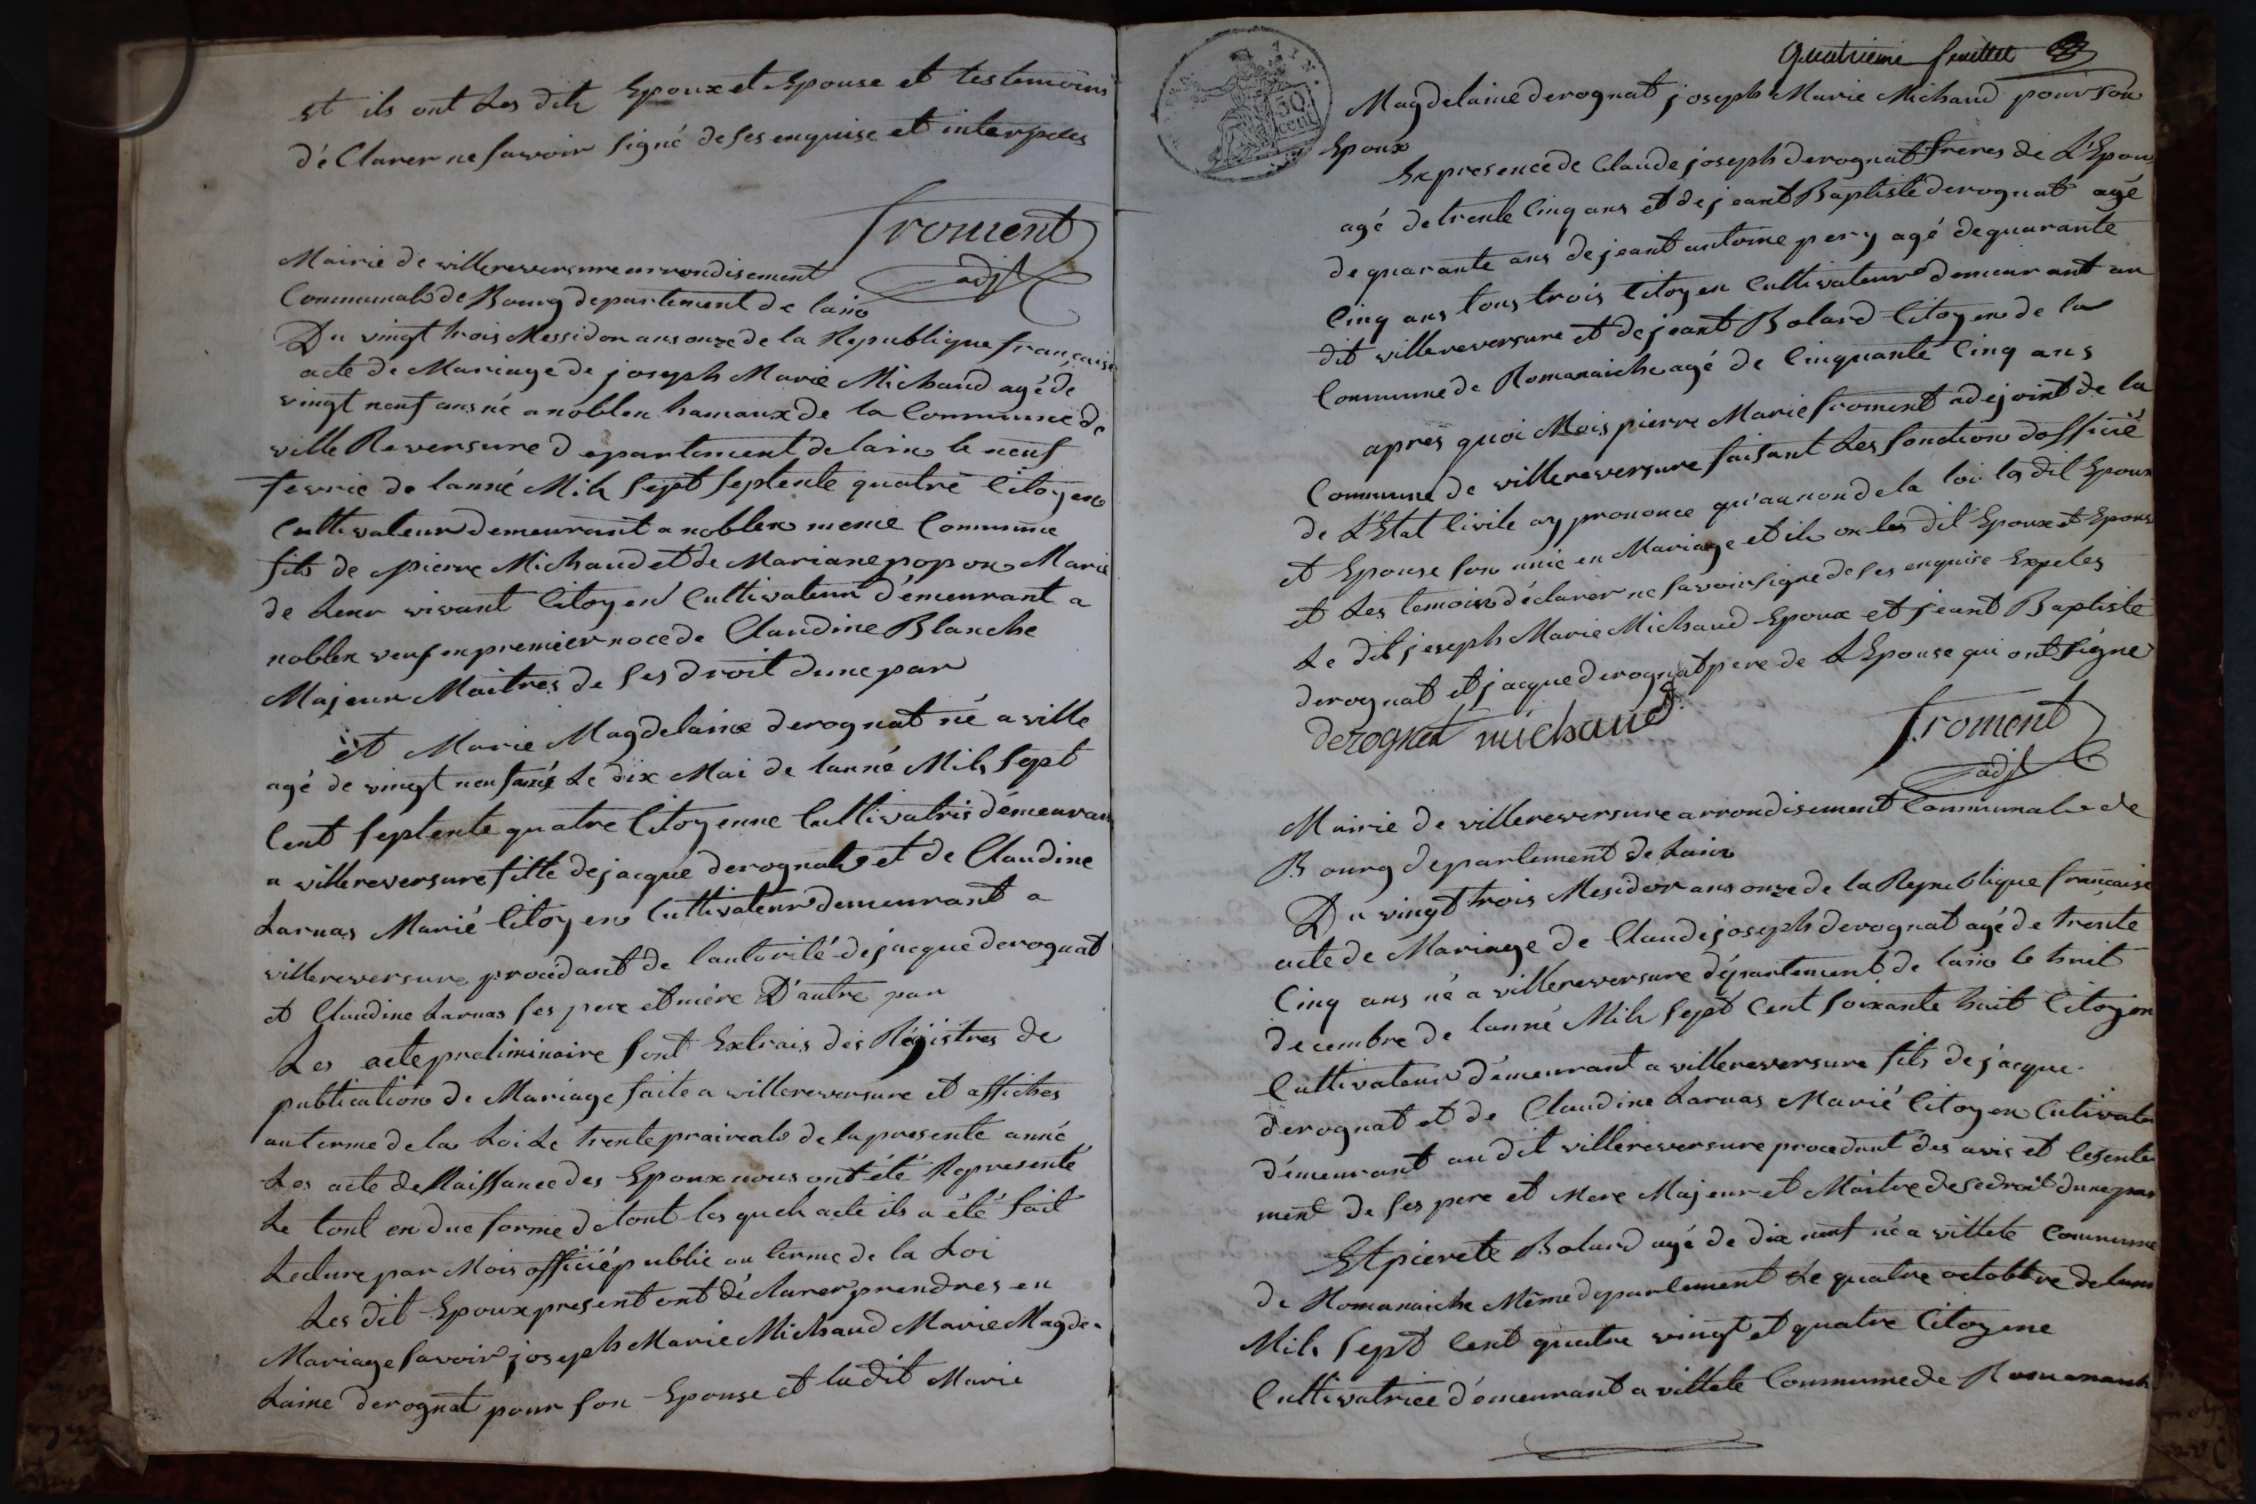 et ils ont Les dits Epoux et Epouse et les temoins
d'éClarer ne savoir signé de ses enquise et interpeles
froment
adjt
Mairie de villereversure arrondisement
Communale de Bourg departement de lain
Du vingt trois Messidor ans onze de la Republique française
acte de Mariage de joseph Marie Michaud agé de
vingt neuf ans né a noblen hamaux de la Commune de
ville Reversure departement de lain le neuf
fevrie de lanné Mil sept septente quatre Citoyen
Cultivateur demeurant a noblen meme Commune
fils de pierre Michaud et de Mariane popon Marie
de Leur vivant Citoyen Cultivateur d'émeurant a
noblen veuf en premier noce de Claudine Blanche
Majeur Maitres de ses droit dune par
et Marie Magdelaine derognat né a ville
agé de vingt neuf ans Le dix Mai de lanné Mil sept
Cent septente quatre Citoyenne Cultivatris démeuran
a villereversure fille de jacque derognat et de Claudine
Larnas Marié Citoyen Cultivateur demeurant a
villereversure procédant de lautorité de jacque derognat
et Claudine Larnas ses pere et mére D'autre par
Les acte preliminaire sont Extrais des Régistres de
publication de Mariage faite a villereversure et affiches
au terme de la Loi Le trente prairéal de la presente anné
Les acte de Naissance des Epoux nous ont été Representé
Le tout en due forme de tout les quels acte ils a été fait
Lecture par Mois officié public au terme de la Loi
Les dit Epoux present ont déclarer prendres en
Mariage savoir joseph Marie Michaud Marie Magde-
Laine derognat pour son Epouse et la dit Marie
Quatrieme feuillet
50
cent
Magdelaine derognat joseph Marie Michaud pour son
Epoux
En presence de Claude joseph derognat freres de L'Epou
agé de trente Cinq ans et de jeant Baptiste derognat agé
de quarante ans de jeant antoine pery agé de quarante
Cinq ans tous trois Citoyen Cultivateur demeurant au
dit villereversure et de jeant Bolard Citoyen de la
Commune de Romanaiche agé de Cinquante Cinq ans
apres quoi Mois pierre Marie froment adejoint de la
Commune de villereversure faisant Les fonction dofficié
de L'Etat Civile ay prononce qu'au non de la loi les dit Epoux
et Epouse son unie en Mariage et ils on les dit Epoux et Epous
et Les temoin déclarer ne savoir signe de ses enquise Expeles
Le dit joseph Marie Michaud Epoux et jeant Baptiste
derognat et jacque derognat pere de L'Epouse qui ont signe
derognat michaud
froment
adjt
Mairie de villereversure arrondisement Communale de
Bourg departement de Lain
Du vingt trois Mesidor ans onze de la Republique française
acte de Mariage de Claude joseph derognat agé de trente
Cinq ans né a villereversure département de lain le huit
decembre de lanné Mil sept Cent soixante huit Citoyen
Cultivateur d'émeurant a villereversure fils de jacque
derognat et de Claudine Larnas Marié Citoyen Cultivate
démeurant au dit villereversure procedant des avis et Cesente
ment de ses pere et Mere Majeur et Maitre de se droit dune par
Et pierete Bolard agé de dix neuf né a villete Commune
de Romanaiche Même departement Le quatre octobbre de lann
Mil sept Cent quatre vingt et quatre Citoyene
Cultivatrice d'émeurant a villete Commune de Romanaich